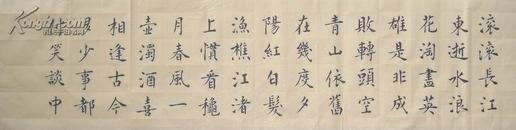 滾滾長江
東逝水浪
花淘盡英
雄是非成
敗轉頭空
青山依舊
在幾度夕
陽紅白髮
漁樵江渚
上慣看穐
月春風一
壺濁酒喜
相逢古今
少事都
笑談中